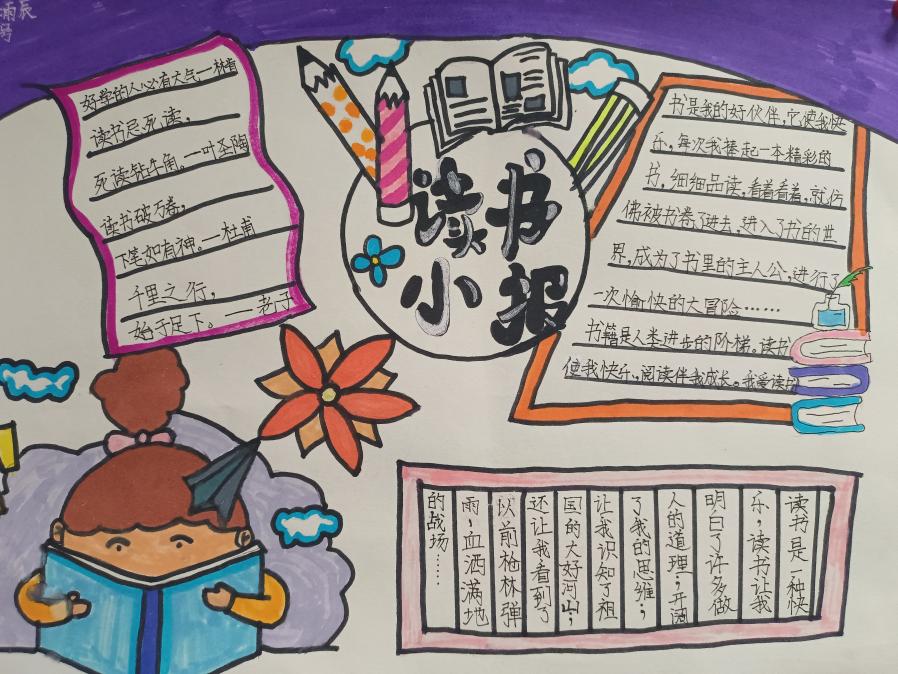 雨辰
号
好学的人必有大气一林肯
读书忌死读，
死读钻牛角。一叶圣陶
读书破万卷，
下笔如有神。一杜甫
千里之行，
始于足下。——老子
读书
小报
书是我的好伙伴，它使我快
乐，每次我捧起一本精彩的
书，细细品读，看着看着，就仿
佛被书卷了进去，进入了书的世
界，成为了书里的主人公，进行了
一次愉快的大冒险……
书籍是人类进步的阶梯。读书
使我快乐，阅读伴我成长。我爱读
读书是一种快
乐；读书让我
明白了许多做
人的道理；开阔
了我的思维；
让我识知了祖
国的大好河山；
还让我看到了
以前枪林弹
雨，血洒满地
的战场……